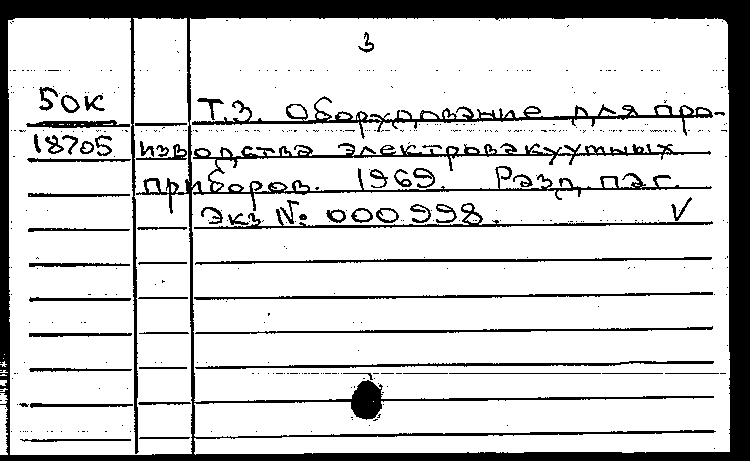 3
50к Т.3. Оборудование для про-
18705 изводства электровакуумных
приборов. 1969. Разд. паг.
Экз № 000998. V